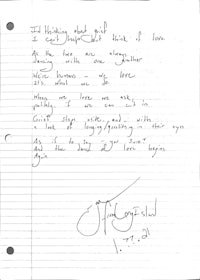 I'd thinking about grief
I can't help but think of love
As the two are always
dancing with one another
We're humans - we love
It's what we do
When we love we ask,
politely if we can cut in
Grief steps aside and with
a look of longing/questioning in their eyes
As if to say "you sure?"
And the dance of love begins
Again